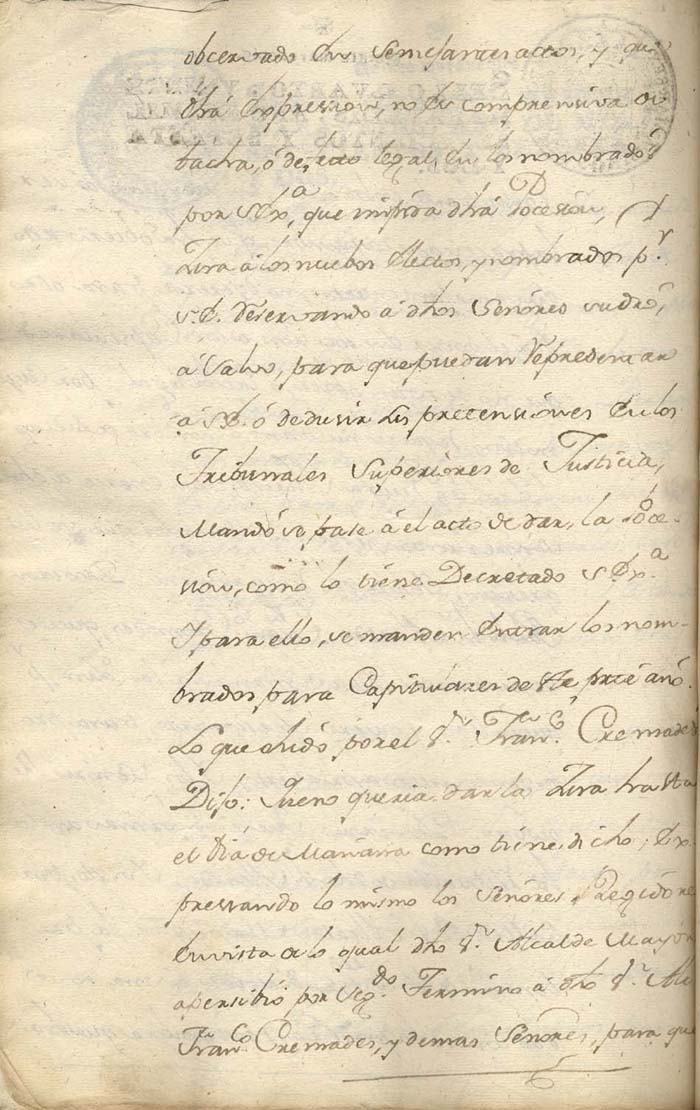 obcervado en Semejantes actos, y que
dhã Expression, no es comprensiva de
tacha, ó defecto legal, en los nombrados
por S. Exª, que impida dhã Poceción,
á los nuebos Electos, y nombrados pʳ
S. E. reservando á dhõs Señores su drõ,
á Salvo, para que puedan representar
á S. E. ó deducir sus pretensiones en los
Tribunales Superiores de Justicia,
Mandó se pase á el acto de dar, la Poce-
sion, como lo tiene Decretado S. Exª
Y para ello, se manden Entrar los nom-
brados para Capitulares de este preste año.
Lo que ohido por el Sʳ Franᶜᵒ Cremades
Dijo: Que no queria dar la hasta
el Dia de Mañana como tiene dicho; Ex-
presando lo mismo los Señores Regidores
En vista de lo qual dhõ Sʳ Alcalde Mayor
apersibió por Segᵈᵒ Termino á dhõ Sʳ
Franᶜᵒ Cremades, y demas Señores, para que